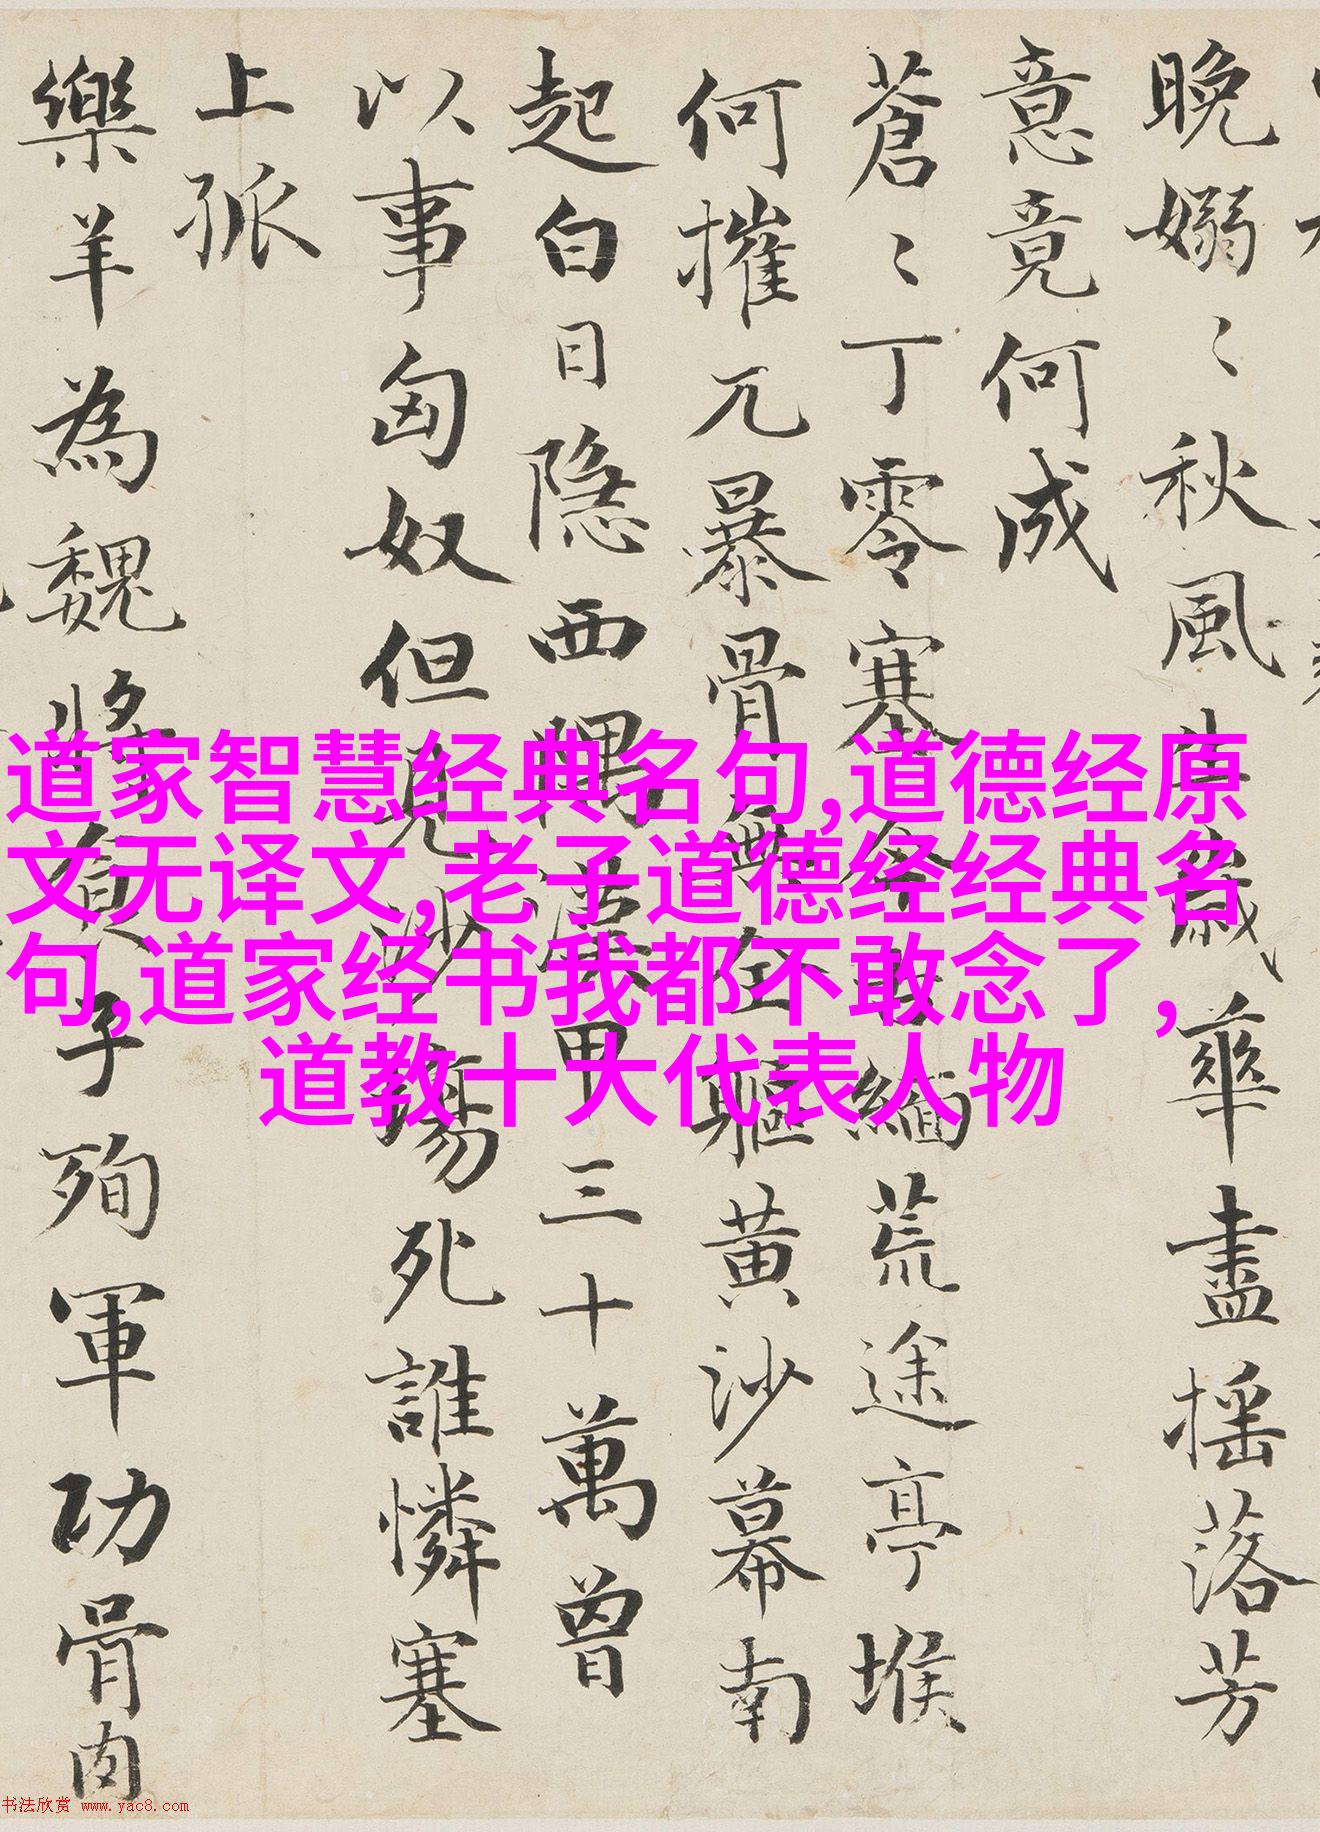 晚嫋〻秋風生歲華盡摇落芳
意竟何成
蒼〻丁零塞今古緬荒途亭堠
何摧兀暴骨無全軀黄沙幕南
起白日隐西隅漢甲三十萬曾
以事匈奴但見沙塲死誰憐塞
上孤
樂羊為魏將食子殉軍功骨肉
道家智慧经典名句,道德经原
文无译文,老子道德经经典名
句,道家经书我都不敢念了,
道教十大代表人物
书法欣赏 www.yac8.com